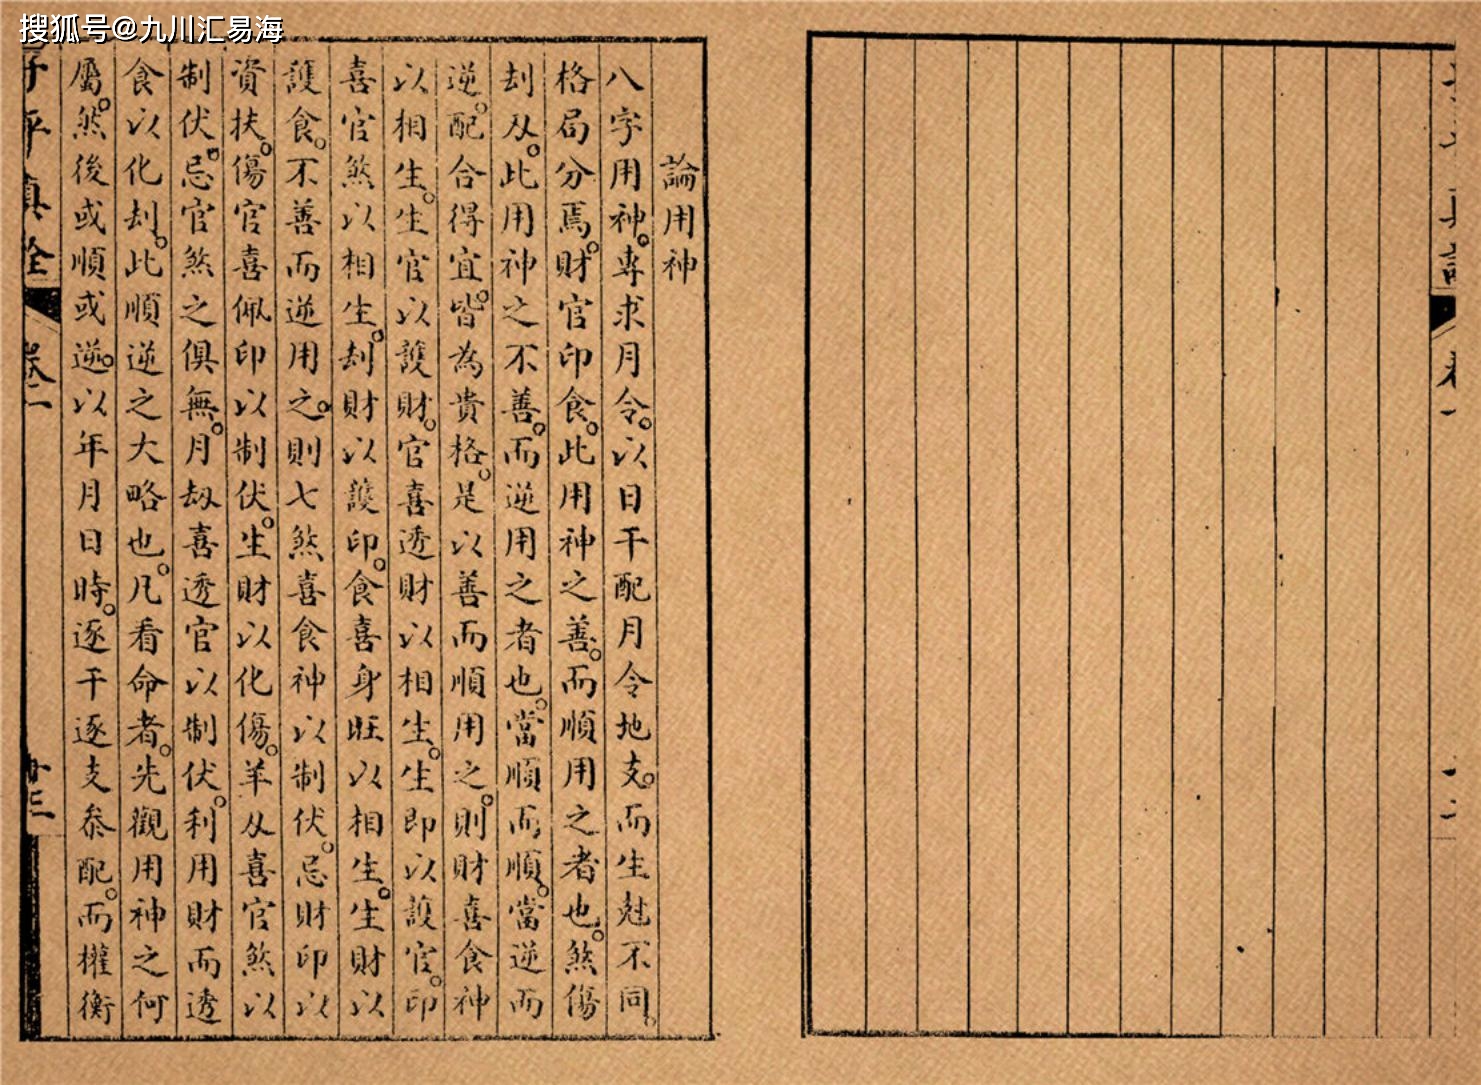 搜狐号@九川汇易海
論用神
八字用神。專求月令。以日干配月令地支。而生尅不同。
格局分焉。財官印食。此用神之善。而順用之者也。煞傷
刦刄。此用神之不善。而逆用之者也。當順而順。當逆而
逆。配合得宜。皆為貴格。是以善而順用之。則財喜食神
以相生。生官以護財。官喜透財以相生。生即以護官。印
喜官煞以相生。刦財以護印。食喜身旺以相生。生財以
護食。不善而逆用之。則七煞喜食神以制伏。忌財印以
資扶。傷官喜佩印以制伏。生財以化傷。羊刄喜官煞以
制伏。忌官煞之俱無。月刼喜透官以制伏。利用財而透
食以化刦。此順逆之大略也。凡看命者。先觀用神之何
屬。然後或順或逆。以年月日時。逐干逐支叅配。而權衡
子平真詮
卷一
廿三